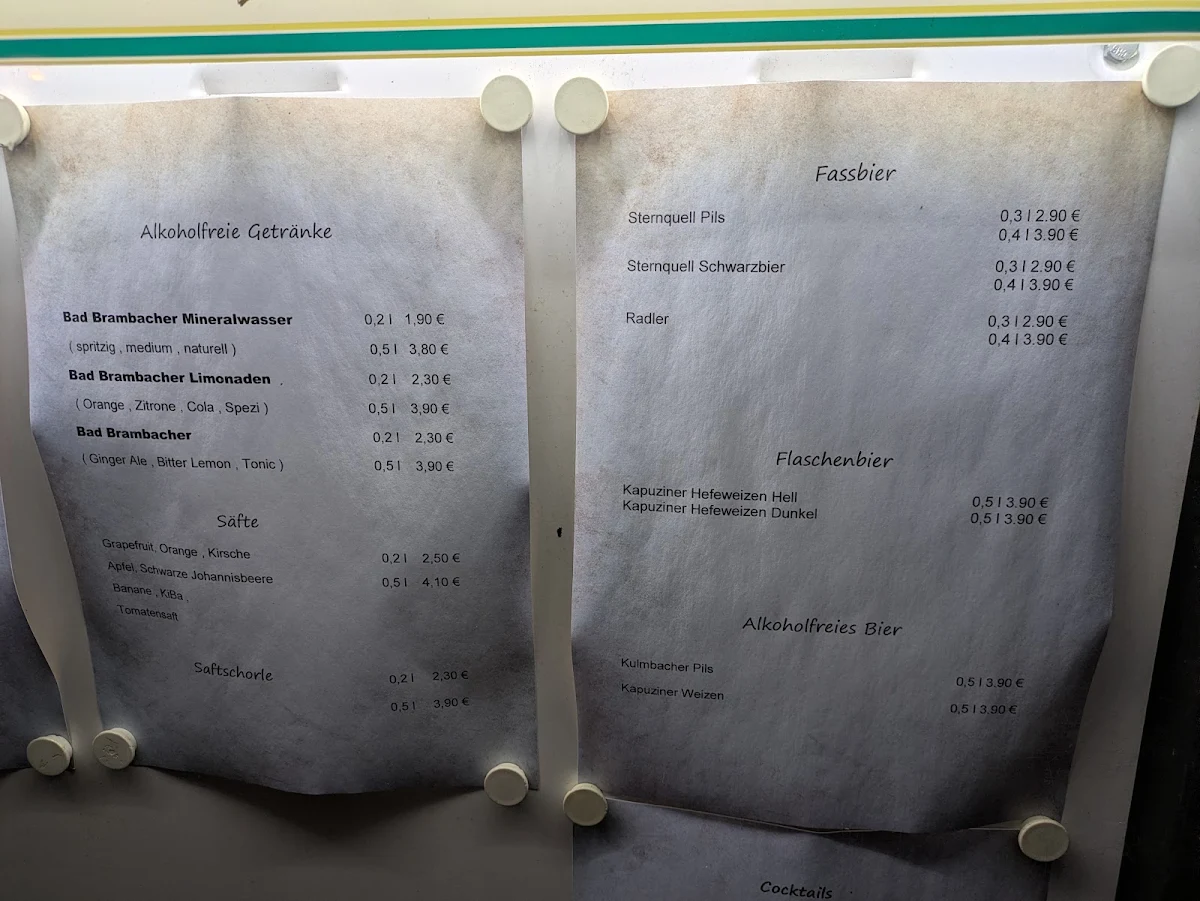 Alkoholfreie Getränke
Bad Brambacher Mineralwasser 0,2 l 1,90 €
( spritzig , medium , naturell ) 0,5 l 3,80 €
Bad Brambacher Limonaden . 0,2 l 2,30 €
( Orange , Zitrone , Cola , Spezi ) 0,5 l 3,90 €
Bad Brambacher 0,2 l 2,30 €
( Ginger Ale , Bitter Lemon , Tonic ) 0,5 l 3,90 €
Säfte
Grapefruit, Orange , Kirsche 0,2 l 2,50 €
Apfel, Schwarze Johannisbeere 0,5 l 4,10 €
Banane , KiBa ,
Tomatensaft
Saftschorle 0,2 l 2,30 €
0,5 l 3,90 €
Fassbier
Sternquell Pils 0,3 l 2.90 €
0,4 l 3.90 €
Sternquell Schwarzbier 0,3 l 2.90 €
0,4 l 3.90 €
Radler 0,3 l 2.90 €
0,4 l 3.90 €
Flaschenbier
Kapuziner Hefeweizen Hell 0,5 l 3.90 €
Kapuziner Hefeweizen Dunkel 0,5 l 3.90 €
Alkoholfreies Bier
Kulmbacher Pils 0,5 l 3.90 €
Kapuziner Weizen 0,5 l 3.90 €
Cocktails